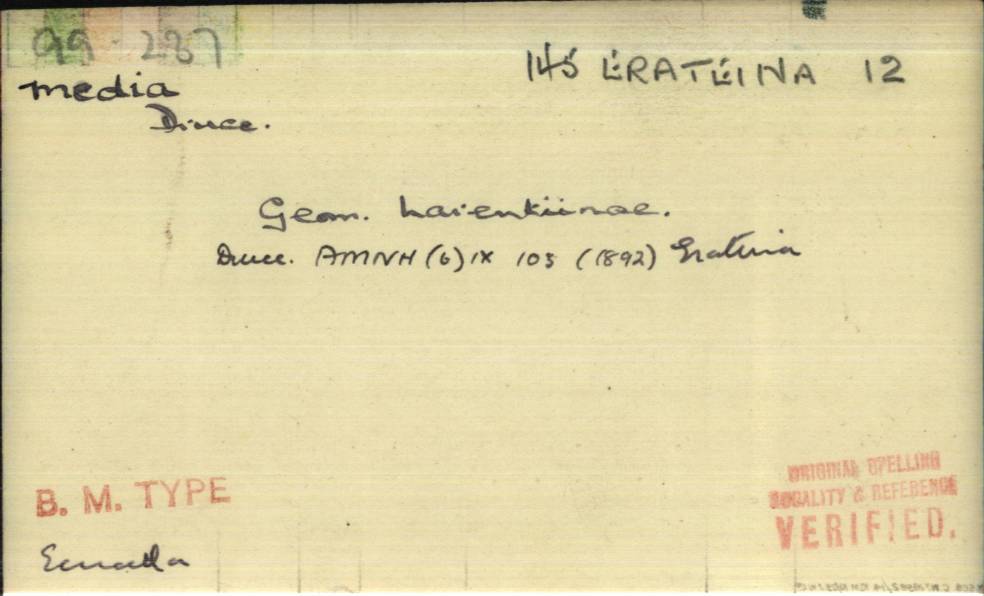 99-287
145 ERATEINA 12
media
Druce.
Geom. Larentiinae.
Druce. AMNH (6) IX 103 (1892) Erateina
B. M. TYPE
ORIGINAL SPELLING
LOCALITY & REFERENCE
VERIFIED.